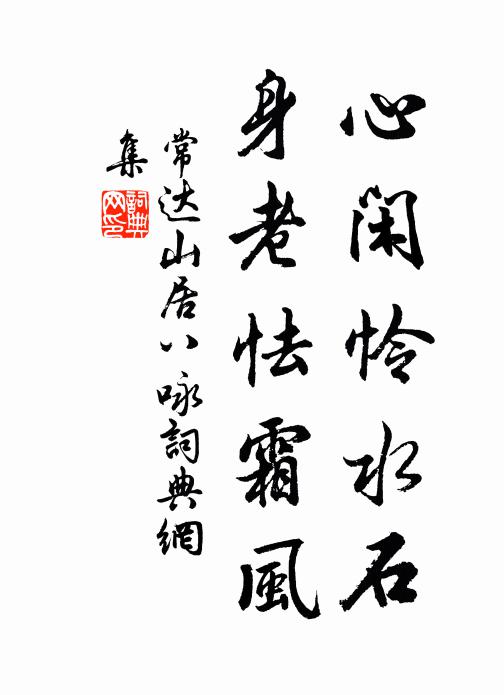 心闲怜水石
身老怯霜風
常达山居八咏詞典網
集
詞典
网印